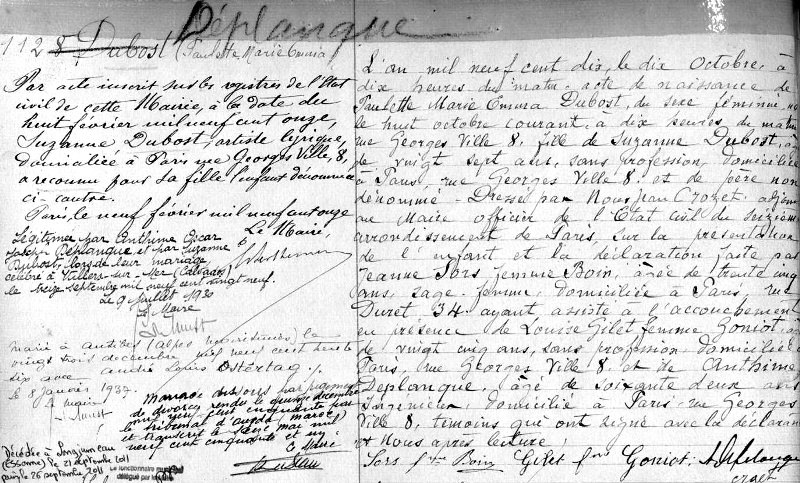 Déplanque
1128 Dubost (Paulette Marie Emma)
Par acte inscrit sur les registres de l'Etat
civil de cette Mairie, à la date du
huit février mil neuf cent onze,
Suzanne Dubost, artiste lyrique,
domiciliée à Paris rue Georges Ville, 8,
a reconnu pour sa fille l'enfant dénommée
ci-contre.
Paris, le neuf février mil neuf cent onze
Le Maire,
Légitimée par Anthime Oscar
Joseph Déplanque et par Suzanne
Dubost, lors de leur mariage
célébré à Villers-sur-Mer (Calvados)
le seize septembre mil neuf cent vingt neuf.
Le 9 juillet 1930
Le Maire
Marié à Antibes (Alpes Maritimes) le
vingt trois décembre mil neuf cent trente
six avec André Louis Ostertag ./.
Le 8 janvier 1937.
Le Maire
Mariage dissous par jugement
de divorce rendu le quinze décembre
mil neuf cent cinquante par
le tribunal d'Oujda, Maroc
et transcrit le
neuf cent cinquante et un
Le Maire
Décédée à Longjumeau
(Essonne) le 21 septembre 2011
Paris, le 26 septembre 2011
Le fonctionnaire municipal
délégué par le Maire
L'an mil neuf cent dix, le dix Octobre, à
dix heures du matin, acte de naissance de
Paulette Marie Emma Dubost, du sexe féminin, née
le huit octobre courant, à dix heures du matin
rue Georges Ville 8, fille de Suzanne Dubost, âgée
de vingt sept ans, sans profession, domiciliée
à Paris, rue Georges Ville 8 et de père non
dénommé - Dressé par Nous, Jean Crozet, adjoint
au Maire officier de l'Etat Civil du seizième
arrondissement de Paris, sur la présentation
de l'enfant et la déclaration faite par
Jeanne Sors femme Boin, âgée de trente cinq
ans, sage-femme, domiciliée à Paris, rue
Duret, 34 ayant assisté à l'accouchement
en présence de Louise Gilet femme Goniot, âgée
de vingt cinq ans, sans profession domiciliée à
Paris, rue Georges Ville 8 et de Anthime
Deplanque, âgé de soixante deux ans
Ingénieur, domicilié à Paris rue Georges
Ville 8, témoins qui ont signé avec la déclarante
et Nous après lecture.
Sors fme Boin Gilet fme Goniot. A Déplanque
Crozet